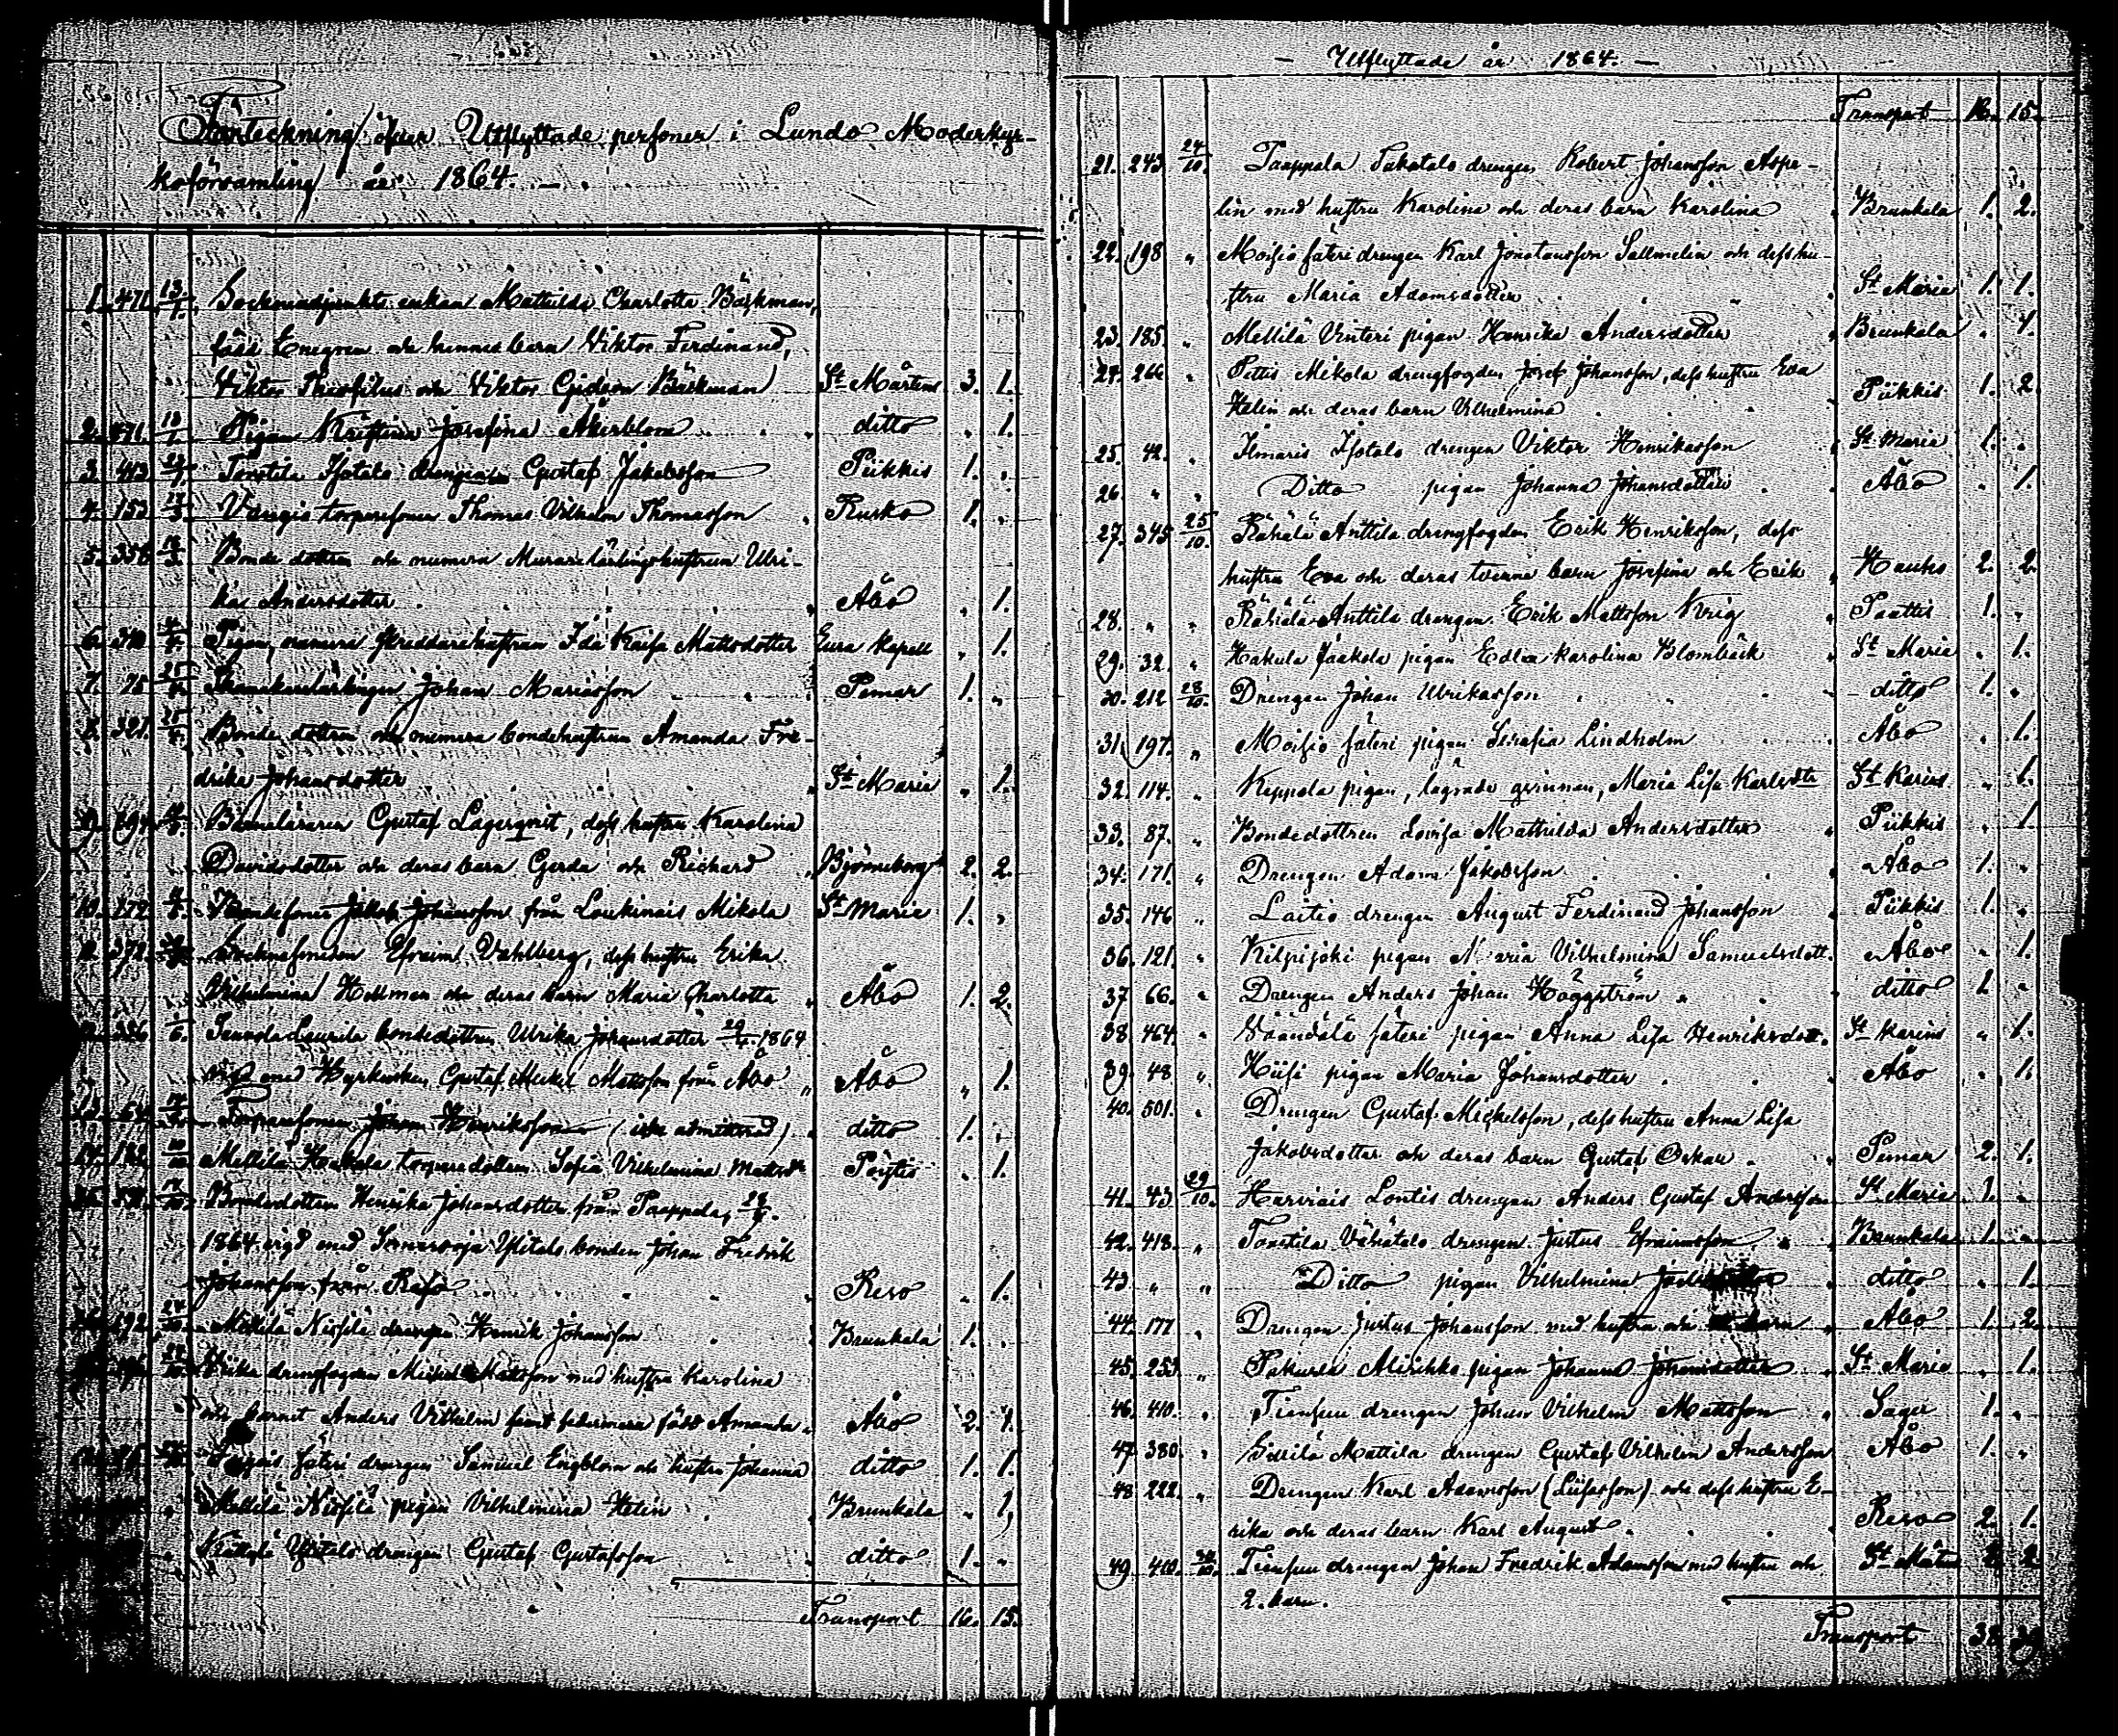 Förteckning öfver Utflyttade personer i Lundo Moderkyr-
koförsamling år 1864.
1. 471. 13/1. Sockneadjunkts enkan Mathilda Charlotta Bäckman,
född Enegren och hennes barn Viktor Ferdinand,
Viktor Theofilus och Viktor Gideon Bäckman St Mårtens 3. 1.
2. 471. 13/1. Pigan Kristina Josefina Åkerblom ditto „ 1.
3. 413. Tontila Isotalo drengen Gustaf Jakobsson Piikkis 1. „
4. 153. torparesonen Thomas Vilhelm Thomasson Rusko 1. „
5. 356. Bonde dottren och numera Murarelärlingshustrun Ulri-
ka Andersdotter Åbo „ 1.
6. Pigan, numera skreddarehustrun Ida Kaisa Mattsdotter Eura Kapell „ 1.
7. 75. 25/4. Johan Mariasson Pemar 1. „
8. 321. 25/4. Bonde dottren och numera bondehustrun Amanda Fre-
drika Johansdotter St Marie „ 1.
9. Barnaläraren Gustaf Lagerqvist, dess hustru Karolina
Davidsdotter och deras barn Gerda och Richard Björneborg 2. 2.
10. 172. Bondesonen Jakob Johansson från Loukinais Mikola St Marie 1. „
372. Efraim Vahlberg, dess hustru Erika
Vilhelmina Hellman och deras barn Maria Charlotta Åbo 1. 2.
326. Laurila bondedottren Ulrika Johansdotter 29/4. 1864
vigd med Hyrkusken Gustaf Mickel Mattsson från Åbo Åbo „ 1.
64. Torparesonen Johan Henriksson (icke admitterad) ditto 1. „
14. 122. Mellilä Hakala torparedottren Sofia Vilhelmina Mattsdr Pöytis „ 1.
Bondedottren Henrika Johansdotter från Paappala,
1864 vigd med Ylitalo bonden Johan Fredrik
Johansson från Reso Reso „ 1.
192. 24/10. Mellilä Nissilä drengen Henrik Johansson Brunkala 1. „
drengfogden Mickel Mattsson med hustru Karolina
och barnet Anders Vilhelm samt född Amanda Åbo 2. 1.
säteri drengen Samuel Engblom och hustru Johanna ditto 1. 1.
„ Mellilä Nissilä pigan Vilhelmina Helin Brunkala „ 1.
„ Ylitalo drengen Gustaf Gustafsson ditto 1. „
Transport 16. 15.
— Utflyttade år 1864. —
Transport 16. 15.
21. 243. 24/10. Paappala Sakatalo drengen Robert Johansson Aspe-
lin med hustru Karolina och deras barn Karolina Brunkala 1. 2.
22. 198 „ Moisio säteri drengen Karl Jonatansson Sallmelin och dess hu-
stru Maria Adamsdotter St Marie 1. 1.
23. 185. „ Mellilä Vinteri pigan Henrika Andersdotter Brunkala „ 1.
24. 266 „ Pettis Mikola drengfogden Josef Johansson, dess hustru Eva
Helin och deras barn Vilhelmina Piikkis 1. 2.
25. 42. „ Ilmaris Isotalo drengen Viktor Henriksson St Maria 1. „
26. „ „ Ditto pigan Johanna Johansdotter Åbo „ 1.
27. 345. 25/10. Rähälä Anttila drengfogden Erik Henriksson, dess
hustru Eva och deras tvenne barn Josefina och Erik Hauho 2. 2.
28. „ „ Rähälä Anttila drengen Erik Mattsson Krig Paattis 1. „
29. 32. „ Hakula Jaakola pigan Edla Karolina Blombäck St Maria „ 1.
30. 212 28/10. Drengen Johan Ulrikasson ditto 1. „
31. 197. „ Moisio säteri pigan Serafia Lindholm Åbo „ 1.
32. 114. „ Keppola pigan, lägrade qvinnan, Maria Lisa Karlsdtr St Karins „ 1.
33. 87. „ Bondedottren Lovisa Mathilda Andersdotter Piikkis „ 1
34. 171. „ Drengen Adam Jakobsson Åbo 1. „
35. 146 „ Laitio drengen August Ferdinand Johansson Piikkis 1. „
36. 121. „ Kilpijoki pigan Maria Vilhelmina Samuelsdott. Åbo „ 1.
37 66. „ Drengen Anders Johan Häggström ditto 1. „
38. 464. „ Väändälä säteri pigan Anna Lisa Henriksdott. St Karins „ 1.
39. 48 „ Hiisi pigan Maria Johansdotter Åbo „ 1.
40. 501. „ Drengen Gustaf Mickelsson, dess hustru Anna Lisa
Jakobsdotter och deras barn Gustaf Oskar Pemar 2. 1.
41. 43 29/10. Harvais Lontis drengen Anders Gustaf Andersson St Maria 1. „
42. 418. „ Tontila Vähätalo drengen Justus Efraimsson Brunkala 1. „
43. „ „ Ditto pigan Vilhelmina ditto „ 1.
44. 177 „ Drengen Justus Johansson med hustru och barn Åbo 1. 2.
45. 253 „ Pakurla Alirikko pigan Johanna Johansdotter St Marie „ 1.
46. 410. „ Tiensuu drengen Johan Vilhelm Mattsson Sagu 1. „
47. 380. „ Sillilä Mattila drengen Gustaf Vilhelm Andersson Åbo 1. „
48 222. „ Drengen Karl Adamsson (Liisasson) och dess hustru E-
rika och deras barn Karl August Reso 2. 1.
49 410. Tiensuu drengen Johan Fredrik Adamsson med hustru och St Mårtens 2. 2
2. barn.
Transport